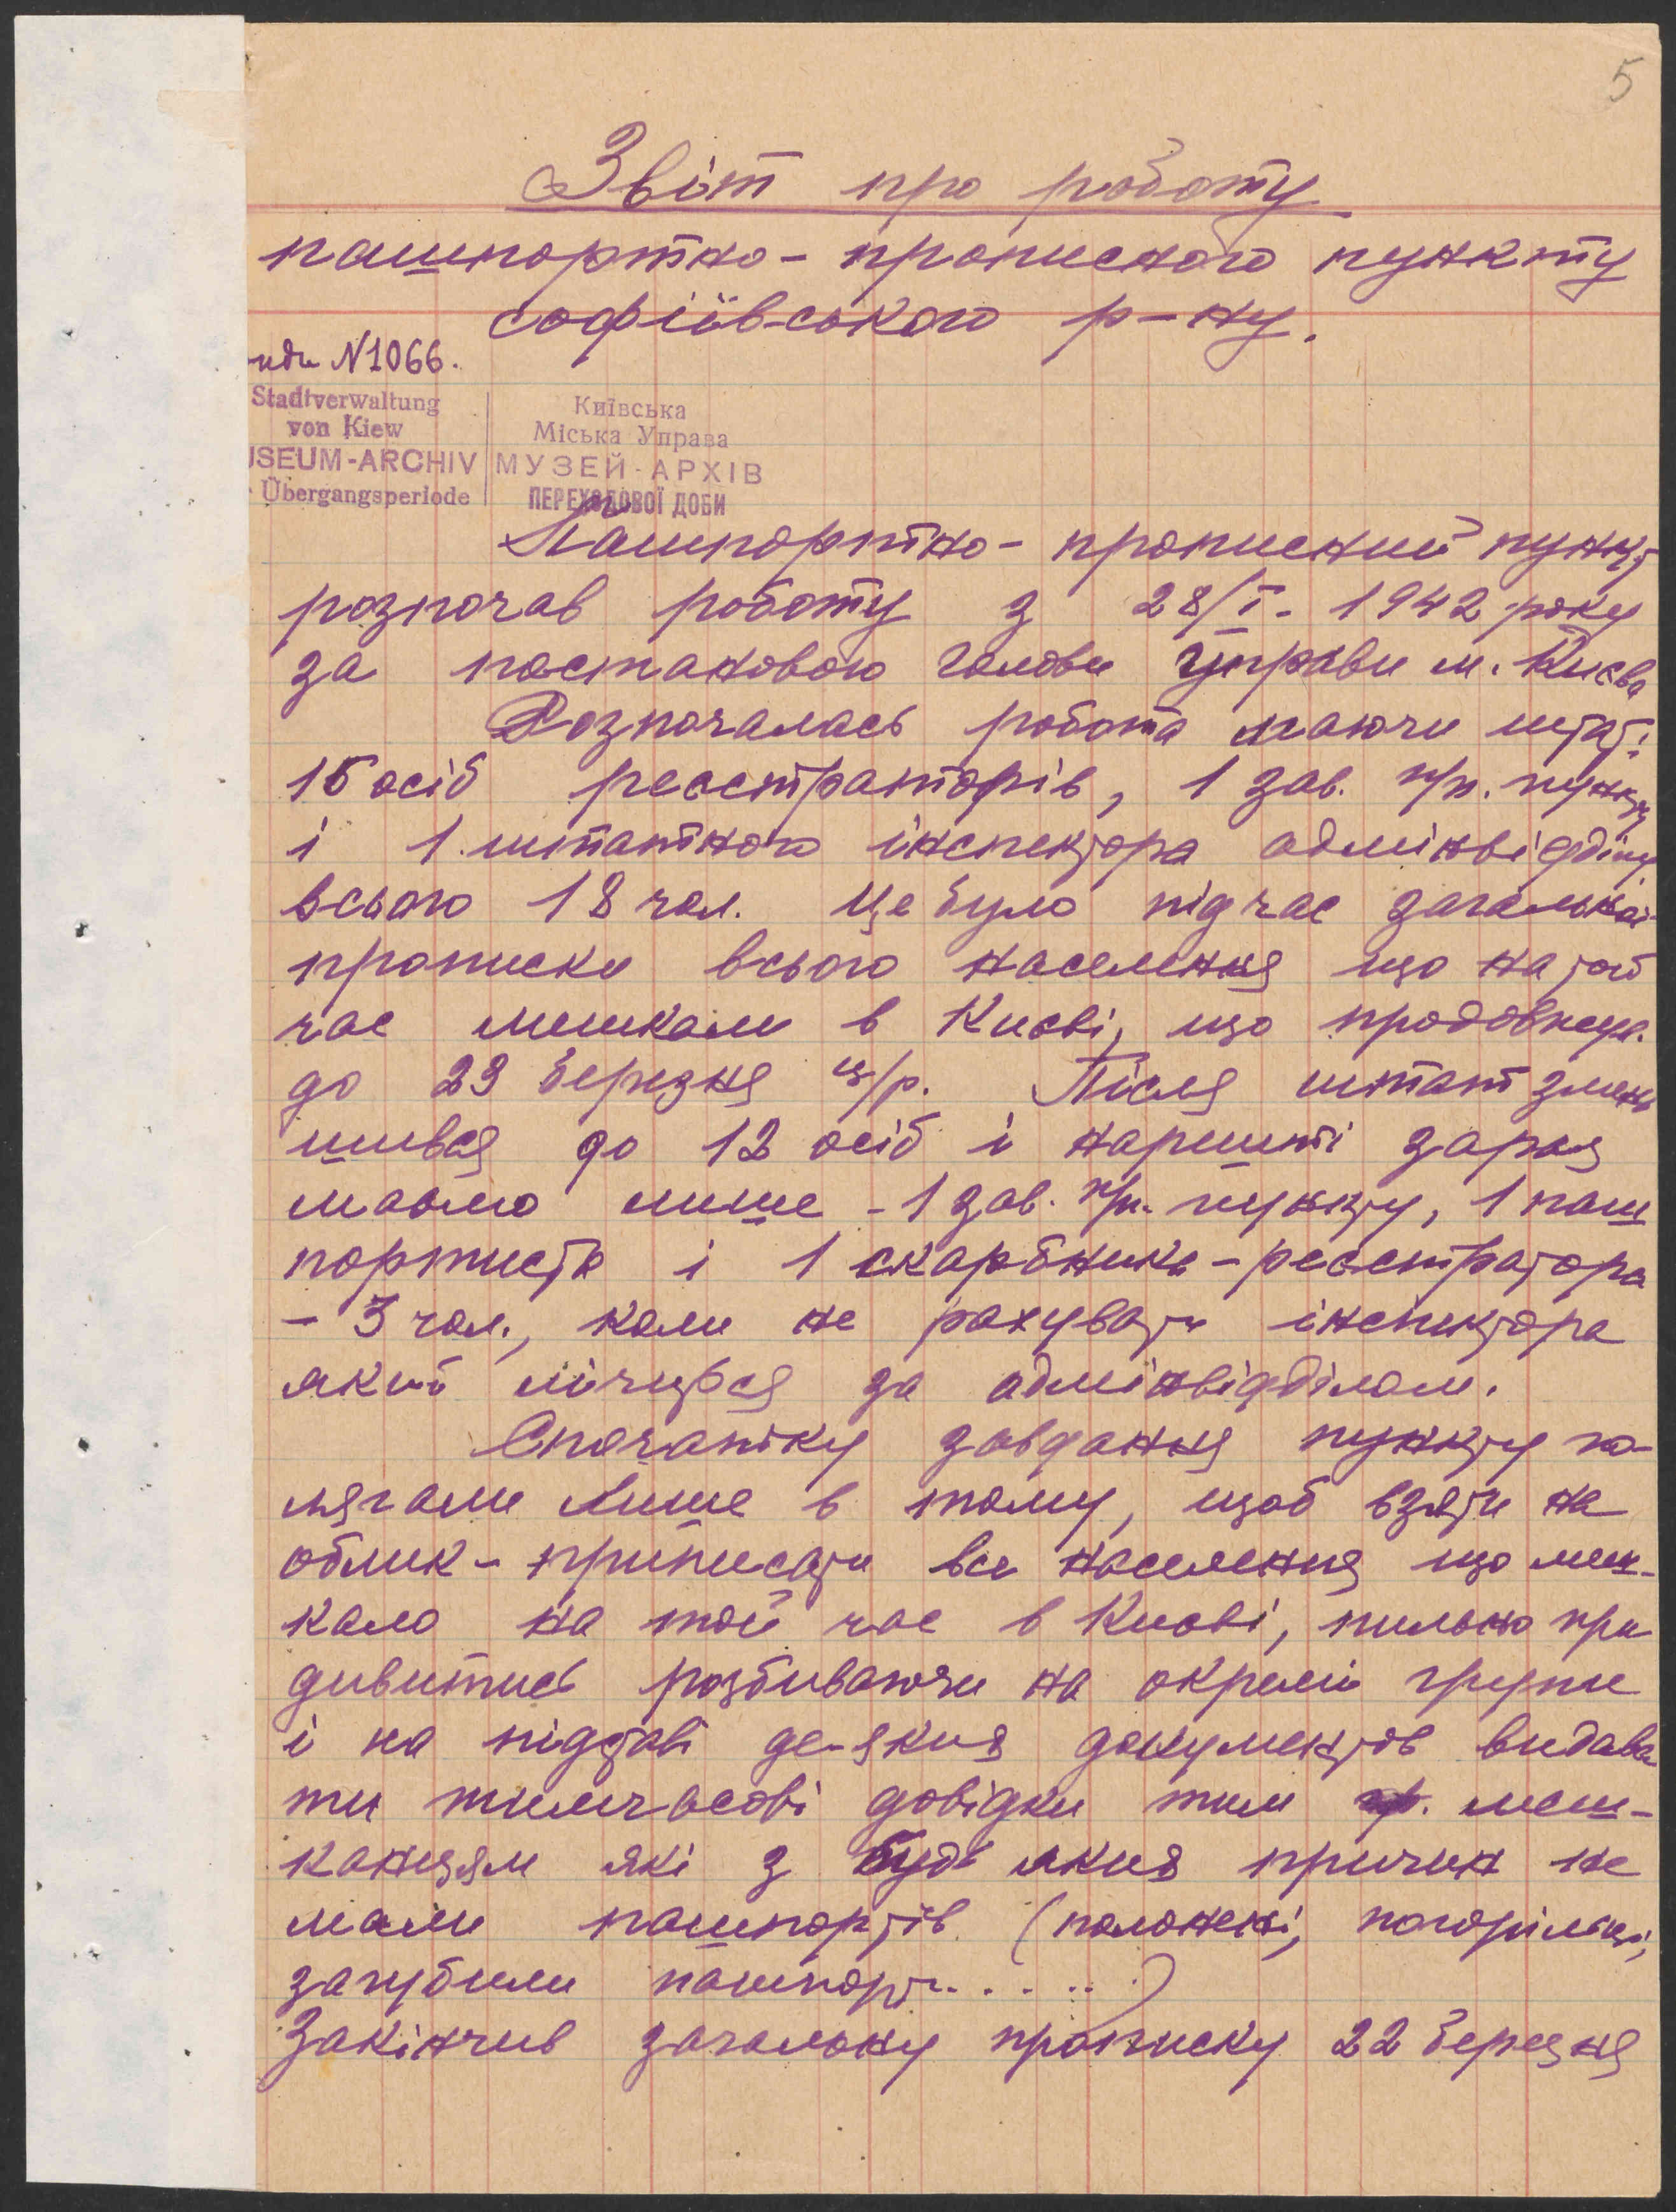 5
Звіт про роботу
пашпортно-прописного пункту
софіївського р-ну.
N1066.
Stadtverwaltung
von Kiew
USEUM-ARCHIV
Übergangsperiode
Київська
Міська Управа
МУЗЕЙ-АРХІВ
ПЕРЕХОДОВОЇ ДОБИ
Пашпортно-прописний пункт
розпочав роботу з 28/I- 1942 року
за постановою Голови Управи м. Києва
Розпочалась робота маючи штат:
15 осіб реєстраторів, 1 зав. п/п. пункту
і 1 штатного інспектора адмінвідділу
всього 18 чол. Це було підчас загальної
прописки всього населення що на той
час мешкали в Києві, що продовжув.
до 23 березня ц/р. Після штат змень
шився до 12 осіб і нарешті зараз
маємо лише - 1 зав. п/п. пункту, 1 паш
портиста і 1 скарбника-реєстратора
- 3 чол., коли не рахувати інспектора
який лічиться за адмінвідділом.
Спочатку завдання пункту по-
лягали лише в тому, щоб взяти на
облик- приписати все населення що меш-
кало на той час в Києві, пильно при
дивитись розбиваючи на окремі групи
і на підставі де-яких документів видава
ти тимчасові довідки тим меш-
канцям які з будь яких причин не
мали пашпортів (полонені, погорільці,
загубили пашпорти.....)
Закінчив загальну прописку 22 березня